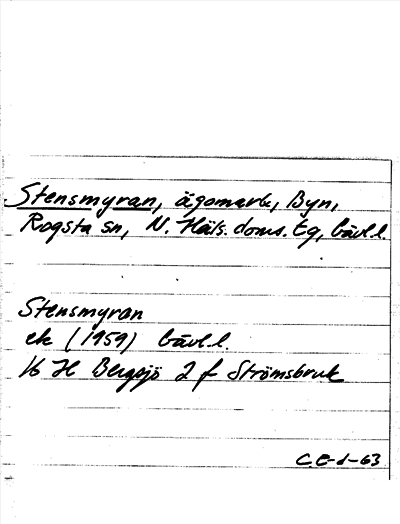 Stensmyran, ägomark, Byn,
Rogsta sn, N. Häls. doms. tg, Gävl.l.
Stensmyran
ek (1959) Gävl.l.
16 H Bergsjö 2 f Strömsbruk
C.E-d-63